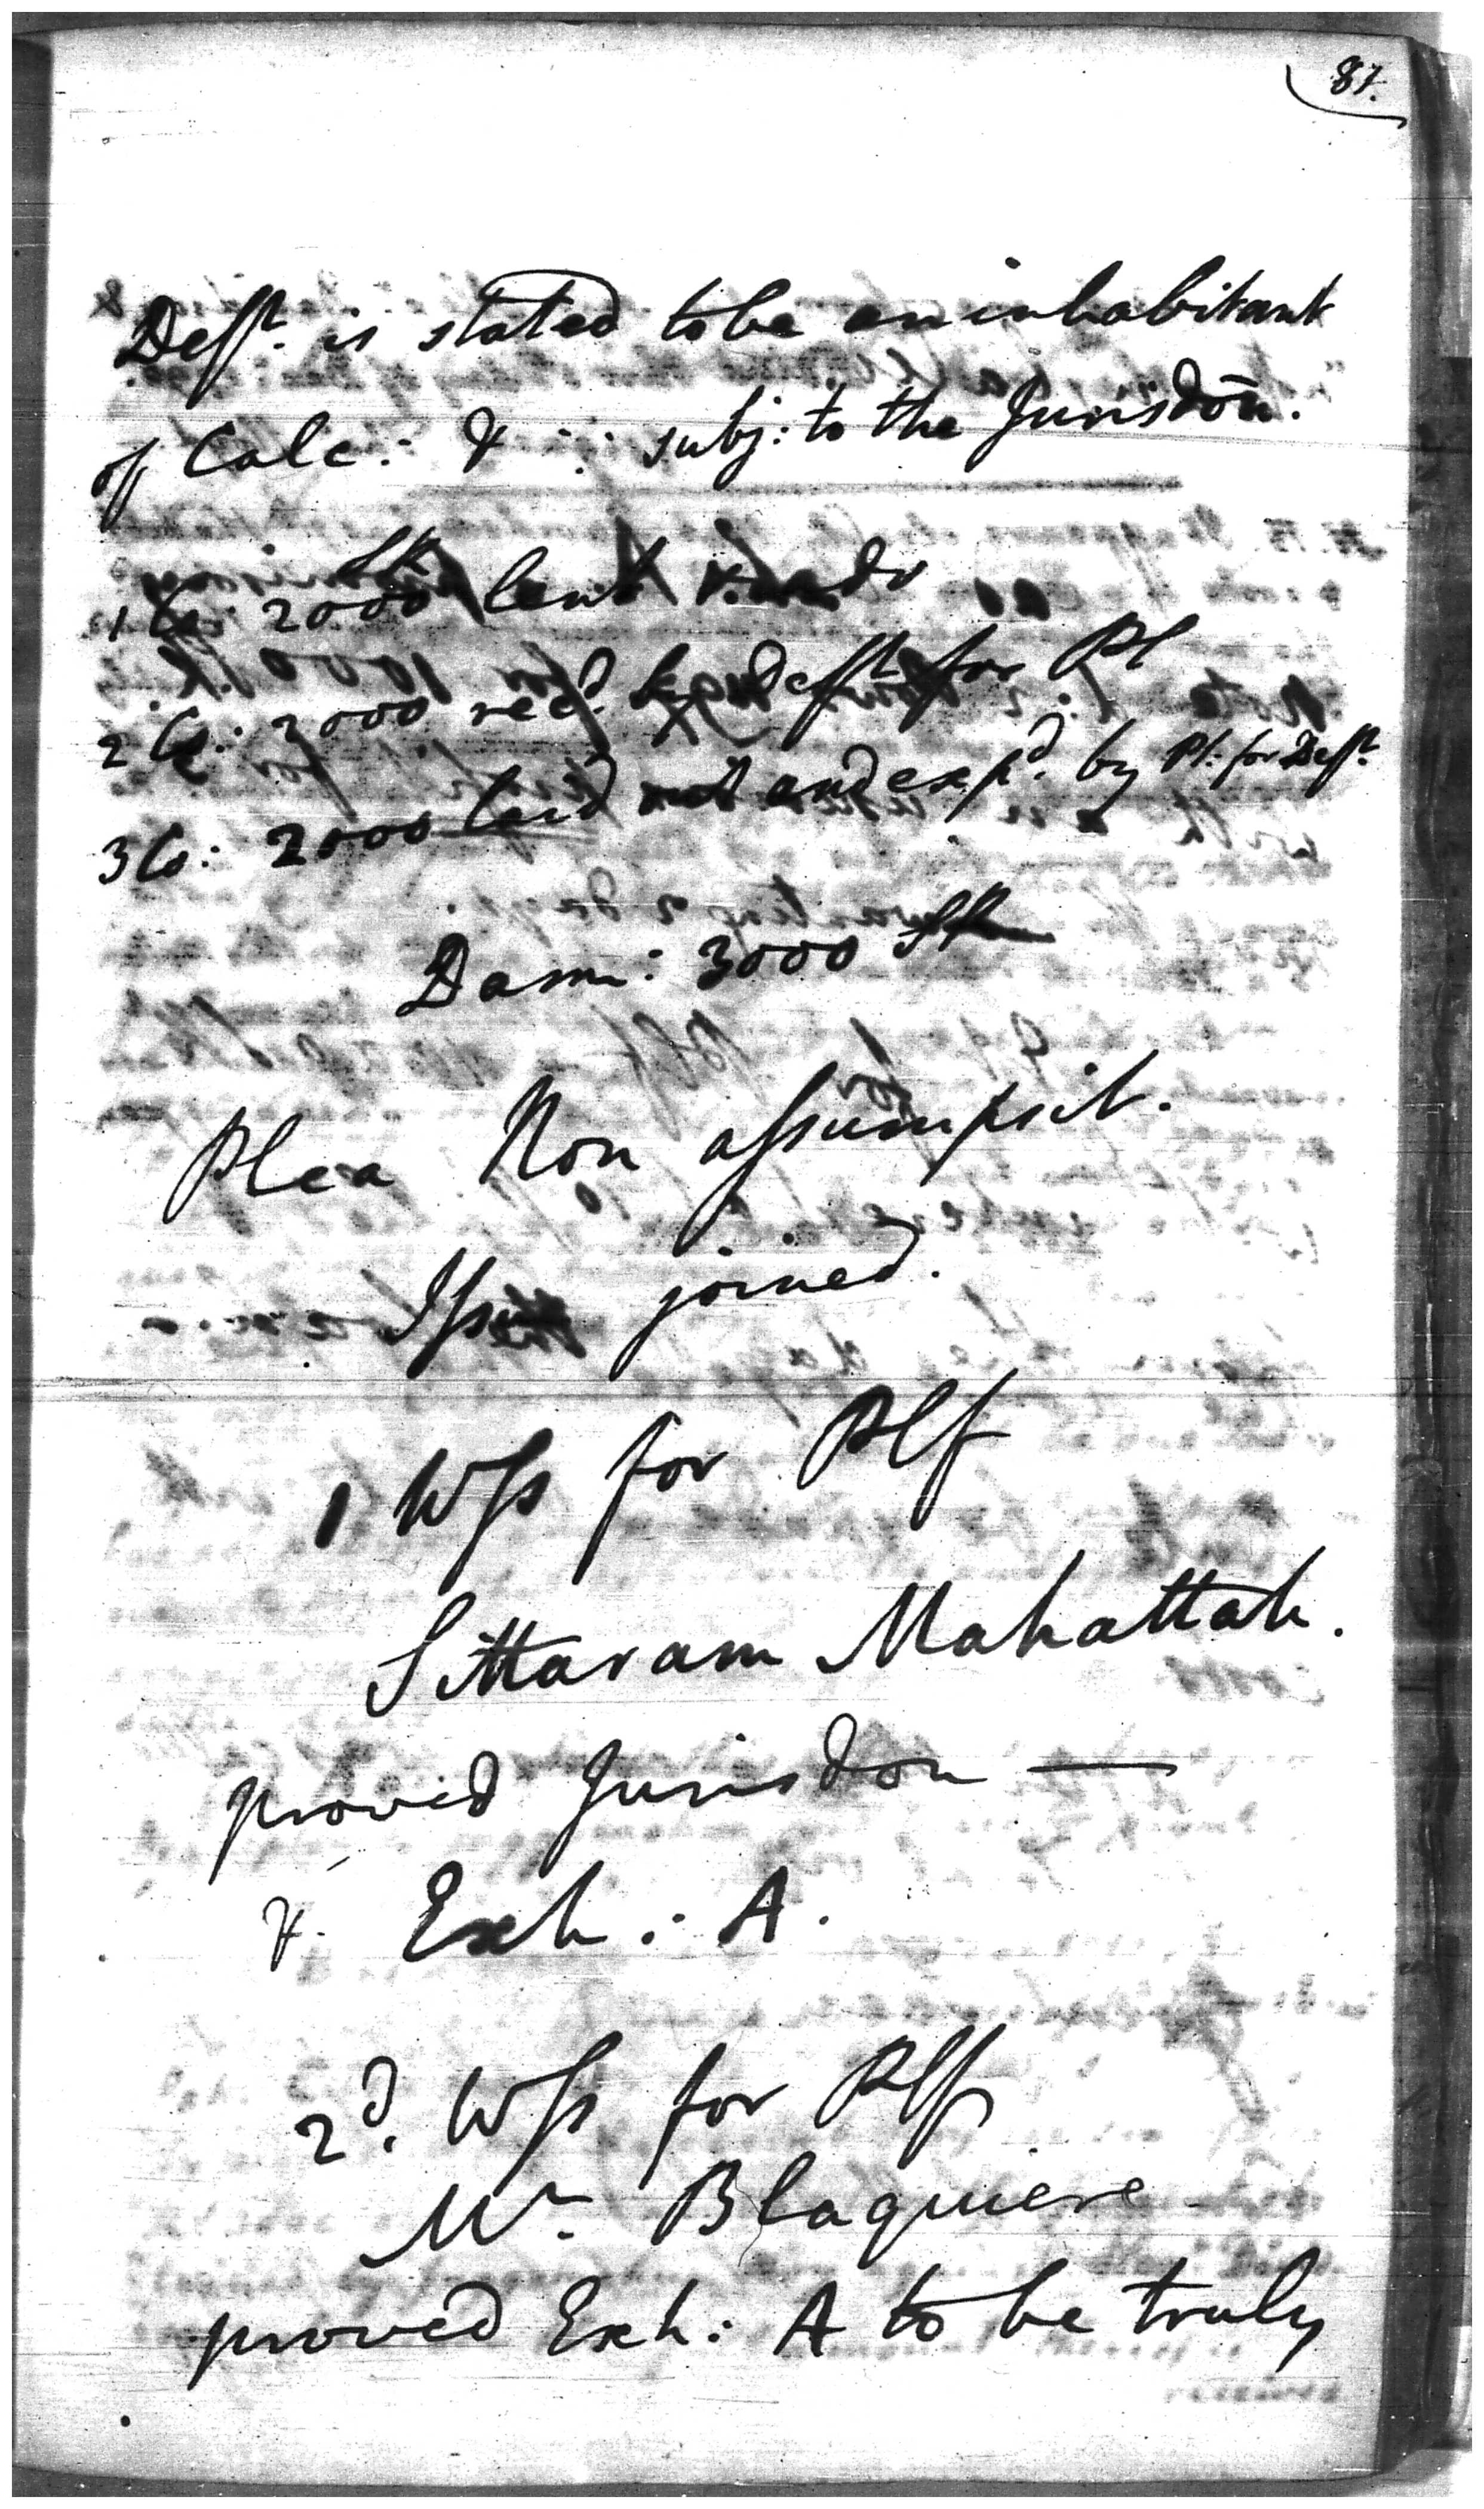 87.
Defft. is stated to be an inhabitant
of Calc: & ∴ subj: to the Jurisdōn.
1 Co: 2000 lent
2 Co: 2000 recd. by Defft for Pl
3 Co: 2000 laid out and expd. by Pl: for Defft
Dam: 3000
Plea Non assumpsit.
Issue joined.
1 Wss for Plf
Sittaram Mahattah.
proved Jurisdon —
&. Exh: A.
2d. Wss for Plff
Mr. Blaquiere
proved Exh: A to be truly